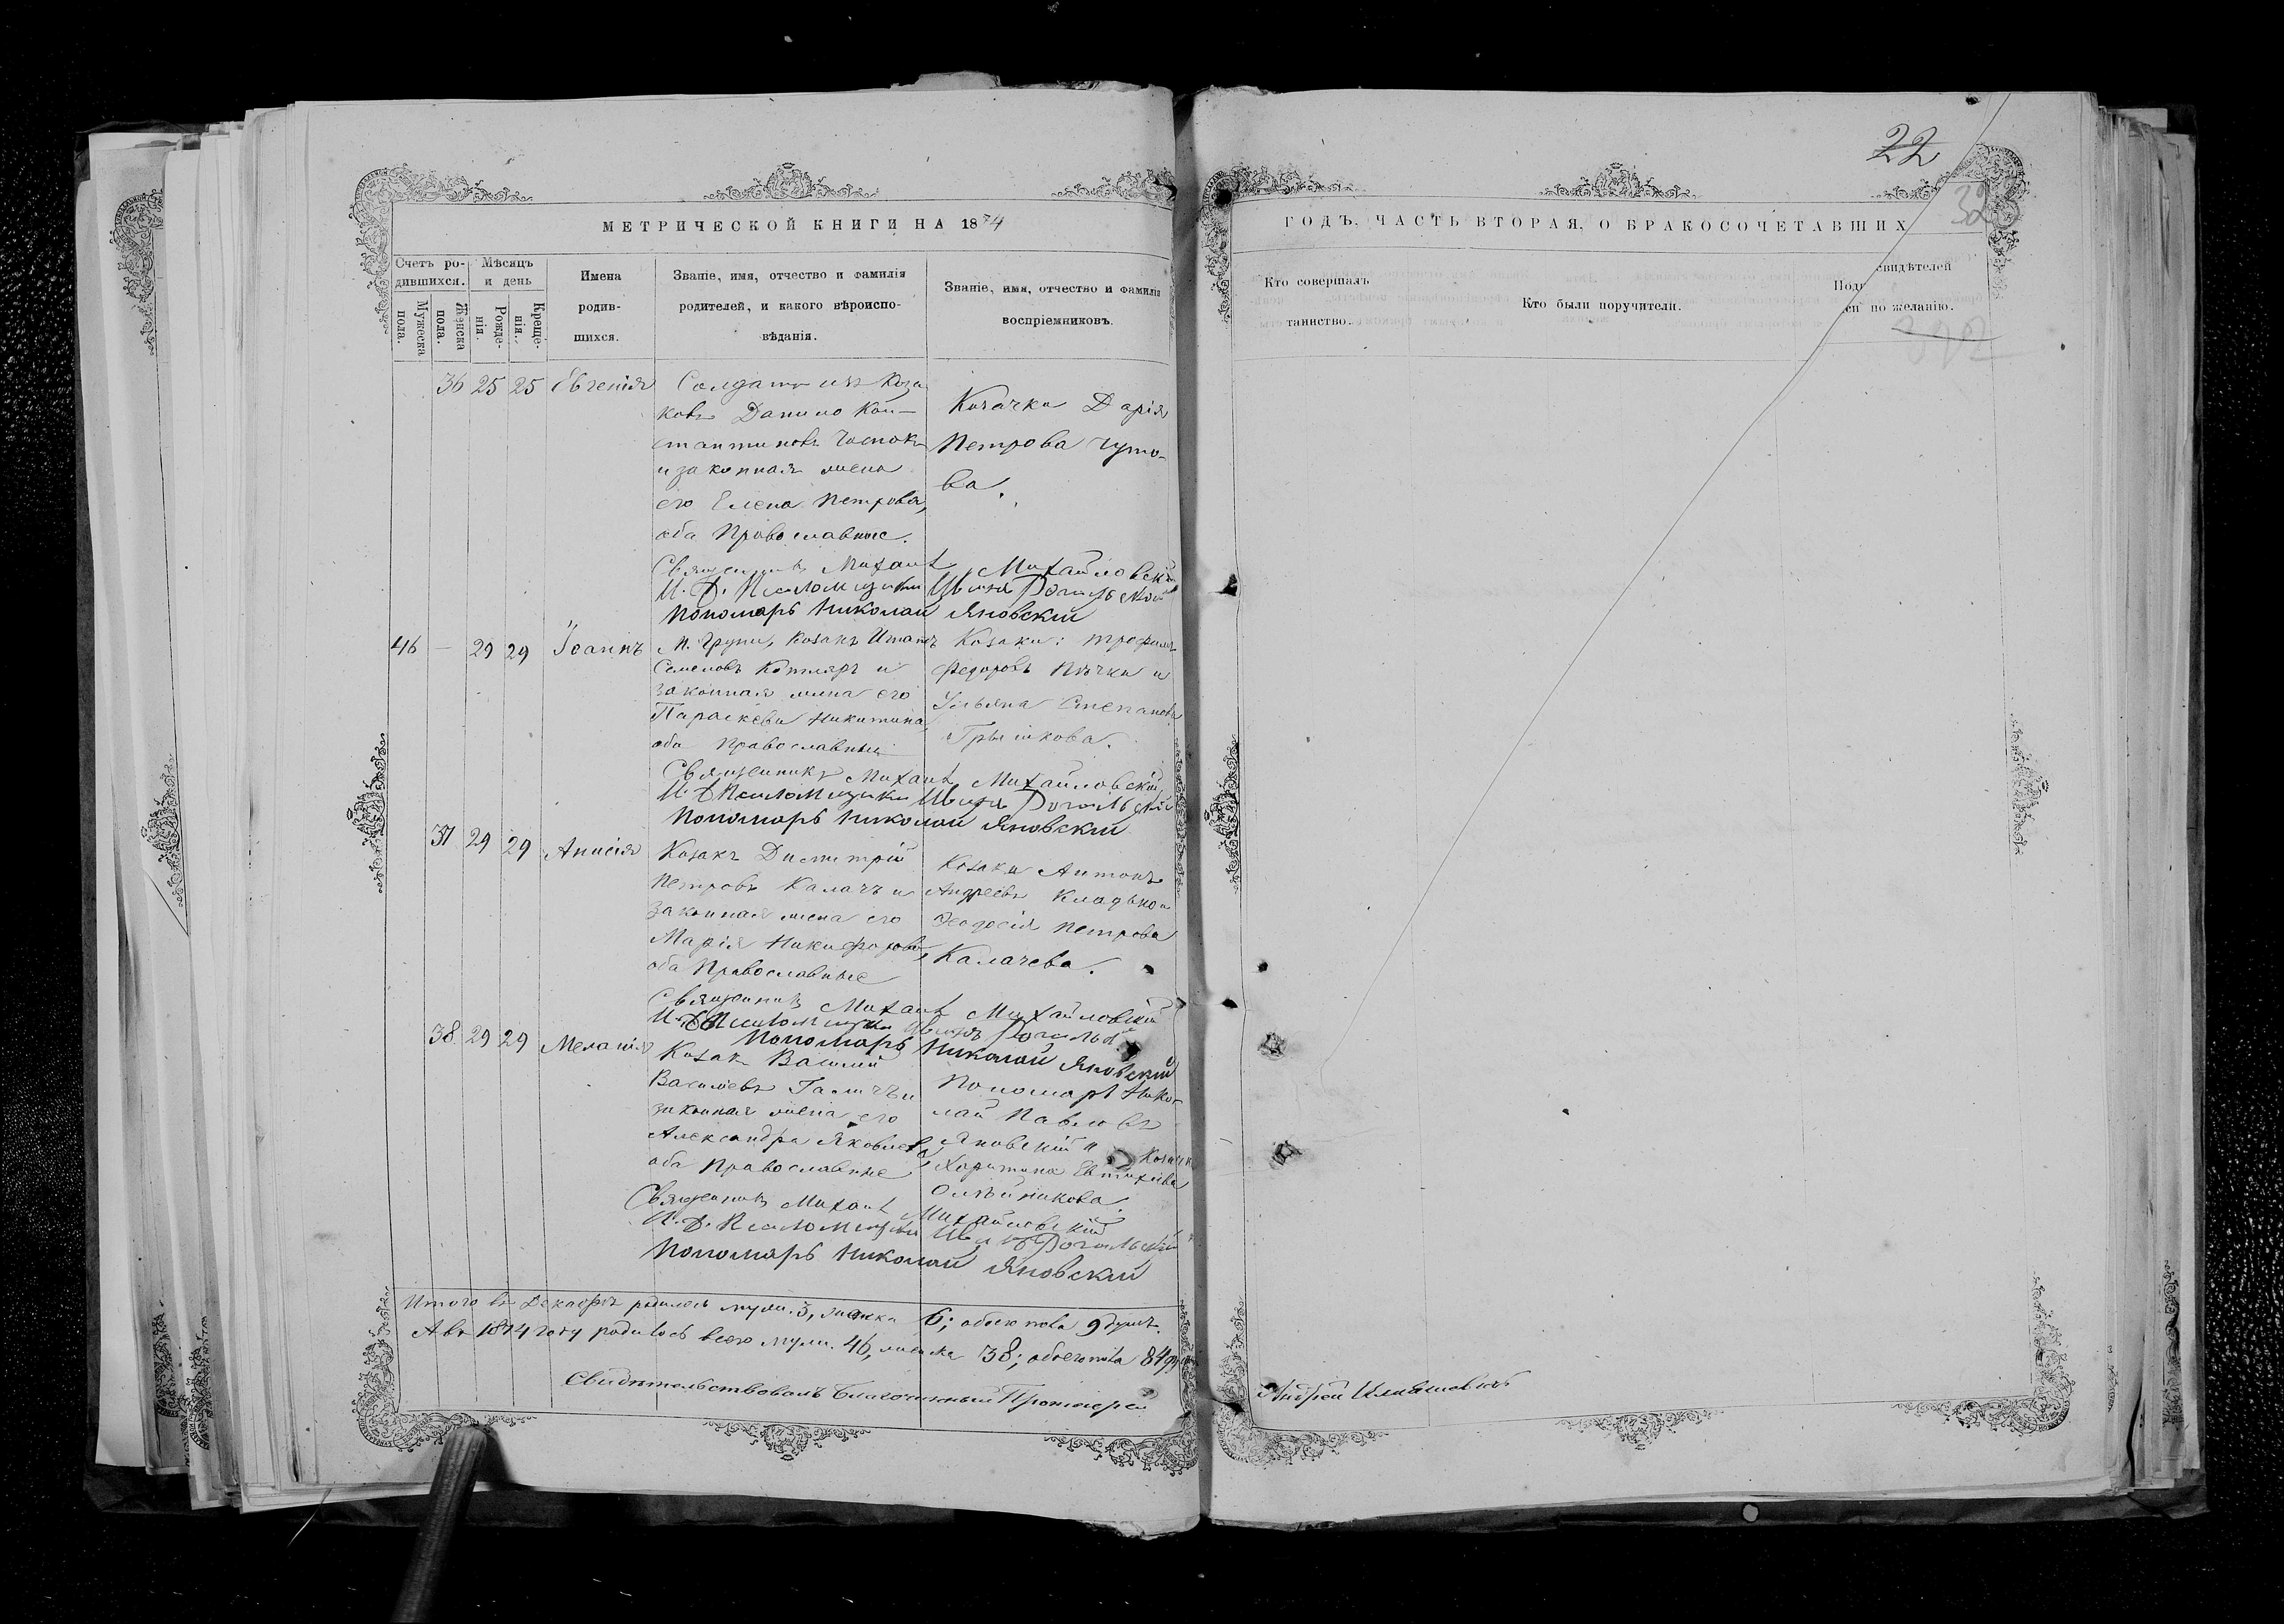 МЕТРИЧЕСКОЙ КНИГИ НА 1874
Счетъ ро-
дившихся.
Мужеска пола.
Женска пола.
Мѣсяцъ
и день
Рожде-
нія.
Креще-
нія.
Имена
родив-
шихся.
Званіе, имя, отчество и фамилія
родителей, и какого вѣроиспо-
вѣданія.
Званіе, имя, отчество и фамилія
воспріемниковъ.
36 25 25 Евгенія
Солдатъ изъ Коза
ковъ Данило Кон-
стантиновъ
и законная жена
его Елена Петрова,
оба Православные.
Козачка Дарія
Петрова Гуто-
ва.
Священникъ Михаилъ Михайловскій
И. Д. Псаломщика
Пономарь Николай Яновскій
46 — 29 29 Іоаннъ
Козакъ
Семеновъ Котляръ и
законная жена его
Параскева Никитина,
оба Православные
Козаки: Трофимъ
Федоровъ и
Ульяна Степанова
Грышкова.
Священникъ Михаилъ Михайловскій
И. Д. Псаломщика
Пономарь Николай Яновскій
37 29 29 Анисія
Козакъ Димитрій
Петровъ Калачъ и
законная жена его
Марія Никифорова,
оба Православные
Козаки Антонъ
Андреевъ
Феодосія Петрова
Калачева.
Священникъ Михаилъ Михайловскій
И. Д. Псаломщика
Пономарь Николай Яновскій
38 29 29 Меланія
Козакъ Василій
Васильевъ и
законная жена его
Александра Яковлева,
оба Православные
Пономарь Нико-
лай Павловъ
Яновскій и Козачка
Харитина Евтихіева
Олѣйникова.
Священникъ Михаилъ Михайловскій
И. Д. Псаломщика
Пономарь Николай Яновскій
Итого въ Декабрѣ родилось муж. 3, женска 6; обоего пола 9 душъ.
А въ 1874 году родилось всего муж. 46, женска 38; обоего пола 84
Свидѣтельствовалъ Благочинный Протоіерей
22
ГОДЪ, ЧАСТЬ ВТОРАЯ, О БРАКОСОЧЕТАВШИХ
Кто совершалъ
таинство.
Кто были поручители.
свидѣтелей
по желанію.
Андрей